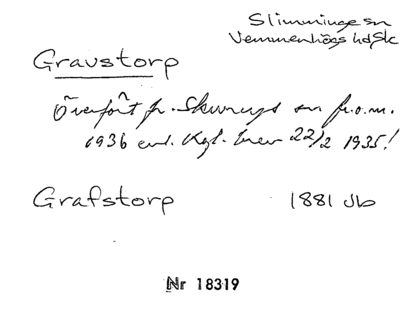 Slimminge sn
Vemmenhögs hd Sk
Gravstorp
Överfört fr. Skurups sn fr.o.m.
1936 enl. Kgl. brev 22/2 1935!
Grafstorp 1881 Jb
Nr 18319